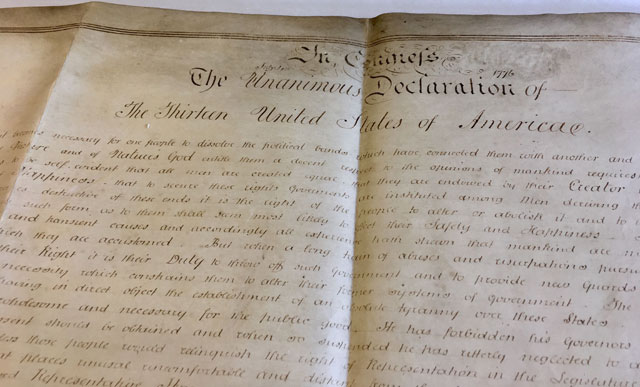 In Congress
1776
The Unanimous Declaration of
The Thirteen United States of America.
necessary for one people to dissolve the political bands which have connected them with another and
and of Natures God entitle them a decent respect to the opinions of mankind requires
to be self evident that all men are created equal that they are endowed by their Creator
Happiness that to secure these rights Governments are instituted among Men deriving
destructive of these ends it is the right of the People to alter or abolish it and to
such form as to them shall seem most likely to effect their Safety and Happiness
and transient causes and accordingly all experience hath shewn that mankind are
which they are accustomed But when a long train of abuses and usurpations pursu
their Right it is their Duty to throw off such Government and to provide new guards
necessity which constrains them to alter their former Systems of Government The
having in direct object the establishment of an absolute tyranny over these States
wholesome and necessary for the public good He has forbidden his Governors
should be obtained and when so suspended he has utterly neglected to
these people would relinquish the right of Representation in the Legislatur
at places unusual uncomfortable and distant from
Representative